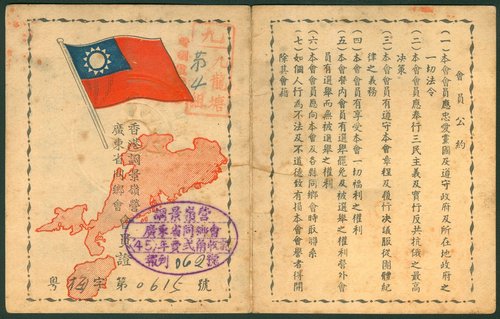 會員公約
(一)本會會員應忠愛黨國及遵守政府及所在地政府之
一切法令
(二)本會會員應奉行三民主義及實行反共抗俄之最高
決策
(三)本會會員有遵守本會章程及履行決議服從團體紀
律之義務
(四)本會會員有享受本會一切福利之權利
(五)本會營內會員有選舉罷免及被選舉之權利營外會
員有選舉而無被選舉之權利
(六)本會會員應向本會及各縣同鄉會時取聯系
(七)如個人行為不法及不道德致有損本會會譽者得開
除其會籍
第4組
香港調景嶺營
廣東省同鄉會
會員證
調景嶺營
廣東省同鄉會
45年費貳角收訖
062
粵 字第0615號